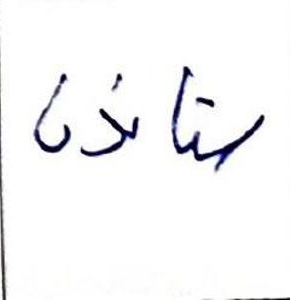 ستاذن